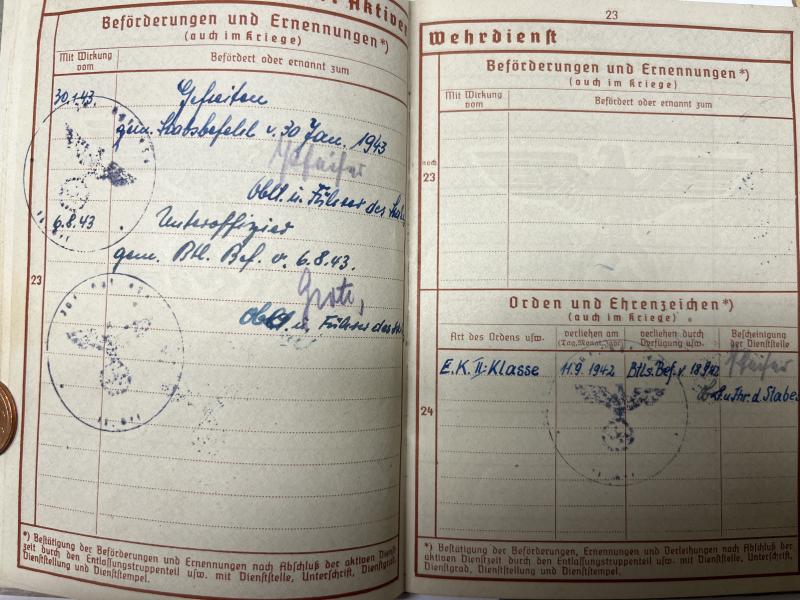 Aktiver
Beförderungen und Ernennungen*)
(auch im Kriege)
Mit Wirkung vom
Befördert oder ernannt zum
30.1.43.
Gefreiten
gem. Stabsbefehl v. 30 Jan. 1943
Oblt. u. Führer des
6.8.43
Unteroffizier
gem. Btl. Bef. v. 6.8.43.
Oblt. u. Führer des
23
*) Bestätigung der Beförderungen und Ernennungen nach Abschluß der aktiven Dienst-
zeit durch den Entlassungstruppenteil usw. mit Dienststelle, Unterschrift, Dienstgrad,
Dienststellung und Dienststempel.
23
Wehrdienst
Beförderungen und Ernennungen*)
(auch im Kriege)
Mit Wirkung vom
Befördert oder ernannt zum
noch
23
Orden und Ehrenzeichen*)
(auch im Kriege)
Art des Ordens usw.
verliehen am (Tag, Monat, Jahr)
verliehen durch Verfügung usw.
Bescheinigung der Dienststelle
E.K. II. Klasse
11.9.1942
Btls. Bef. v.
u. Fhr. d. Stabes
24
*) Bestätigung der Beförderungen, Ernennungen und Verleihungen nach Abschluß der
aktiven Dienstzeit durch den Entlassungstruppenteil usw. mit Dienststelle, Unterschrift,
Dienstgrad, Dienststellung und Dienststempel.